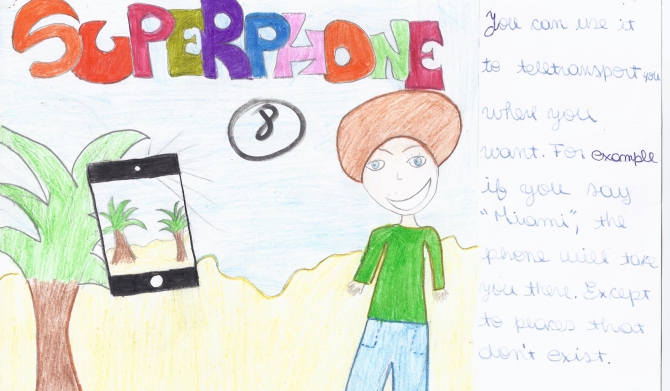 SUPERPHONE
8
You can use it
to teletransport you
where you
want. For example
if you say
"Miami", the
phone will take
you there. Except
to places that
don't exist.